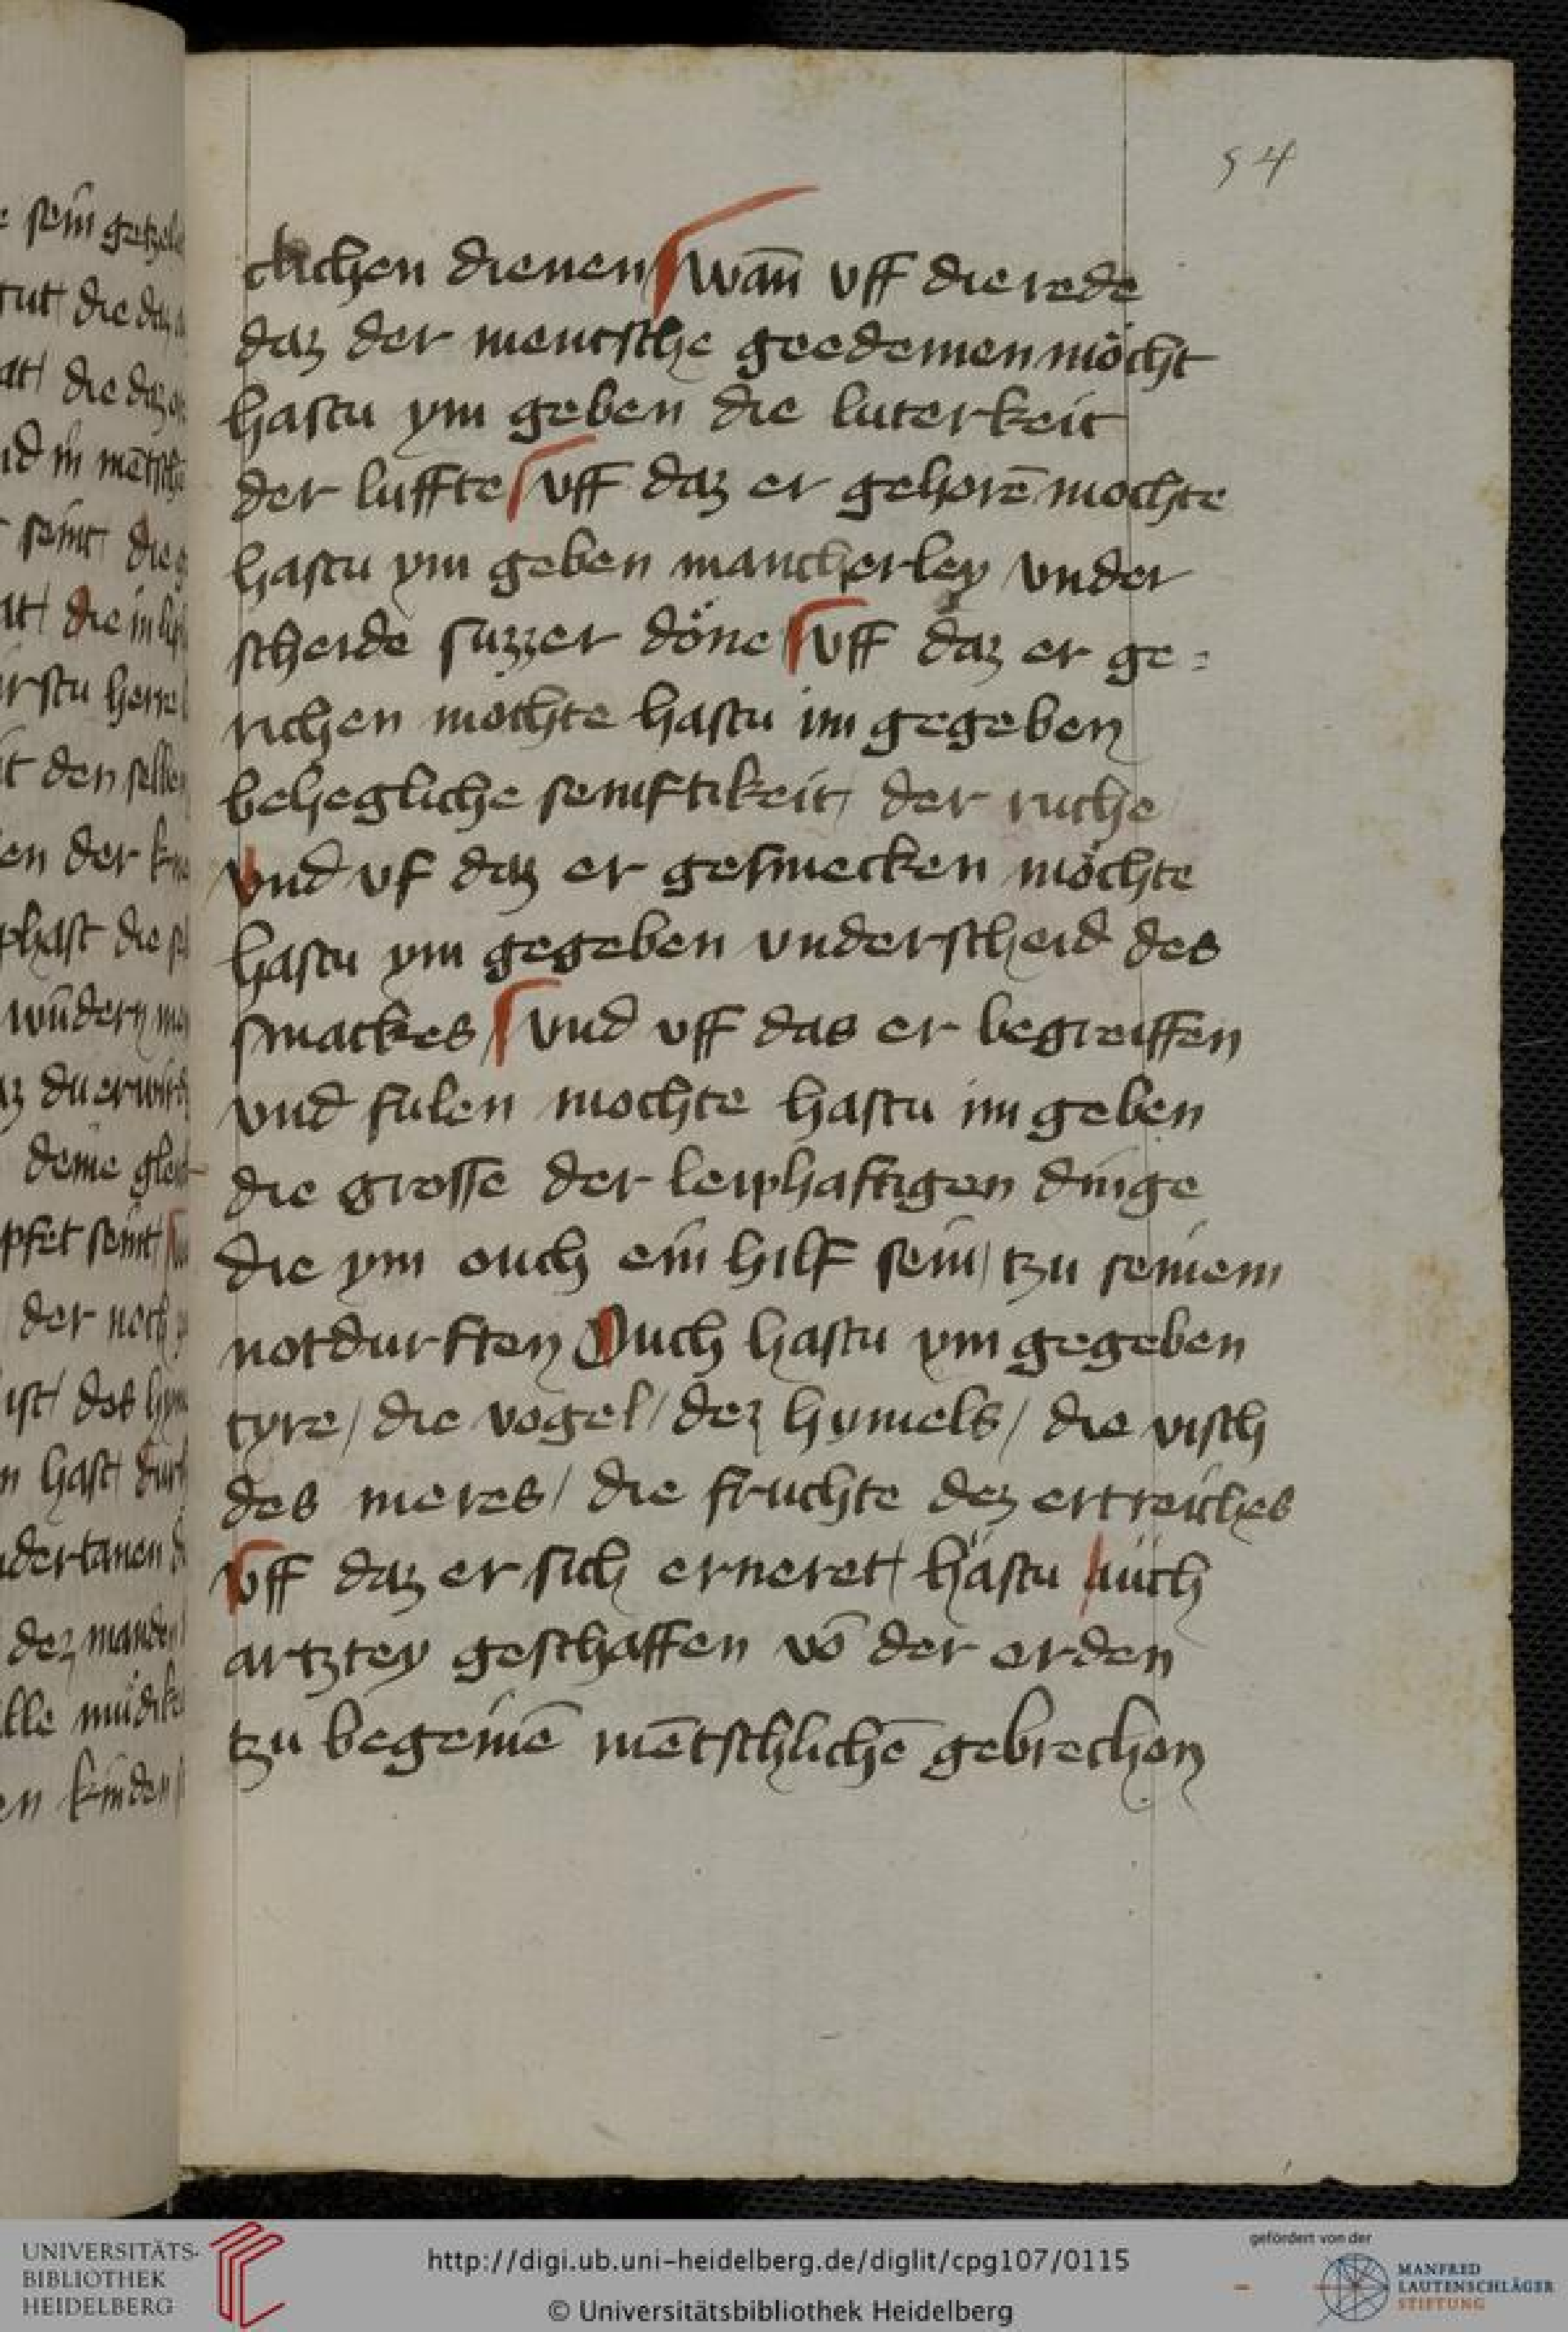 54
clichen dienen wan̄ vff die rede
daz der mentsche geedemen möcht
hastu ym geben die luterkeit
der luffte vff daz er gehorē mochte
hastu ym geben mancherley vnder
scheide suzzer döne vff daz er ge=
richen mochte hastu im gegeben
behegliche semftikeit / der ruche
vnd vf daz er gesmecken möchte
hastu ym gegeben vnderscheid des
smackes / vnd vff das er begreiffen
vnd fulen mochte hastu im geben
die grosse der leiphaftigen dinge
die ym ouch ein hilf sein / tzu seinem
notdurften Ouch hastu ym gegeben
tyre / die vogel / dez hymels / die visch
des meres / die fruchte dez ertreiches
vff daz er sich erneret / hastu auch
artztey geschaffen vō der erden
tzu begeinē mētschlichē gebrechen
UNIVERSITÄTS-
BIBLIOTHEK
HEIDELBERG
http://digi.ub.uni-heidelberg.de/diglit/cpg107/0115
© Universitätsbibliothek Heidelberg
gefördert von der
MANFRED
LAUTENSCHLÄGER
STIFTUNG